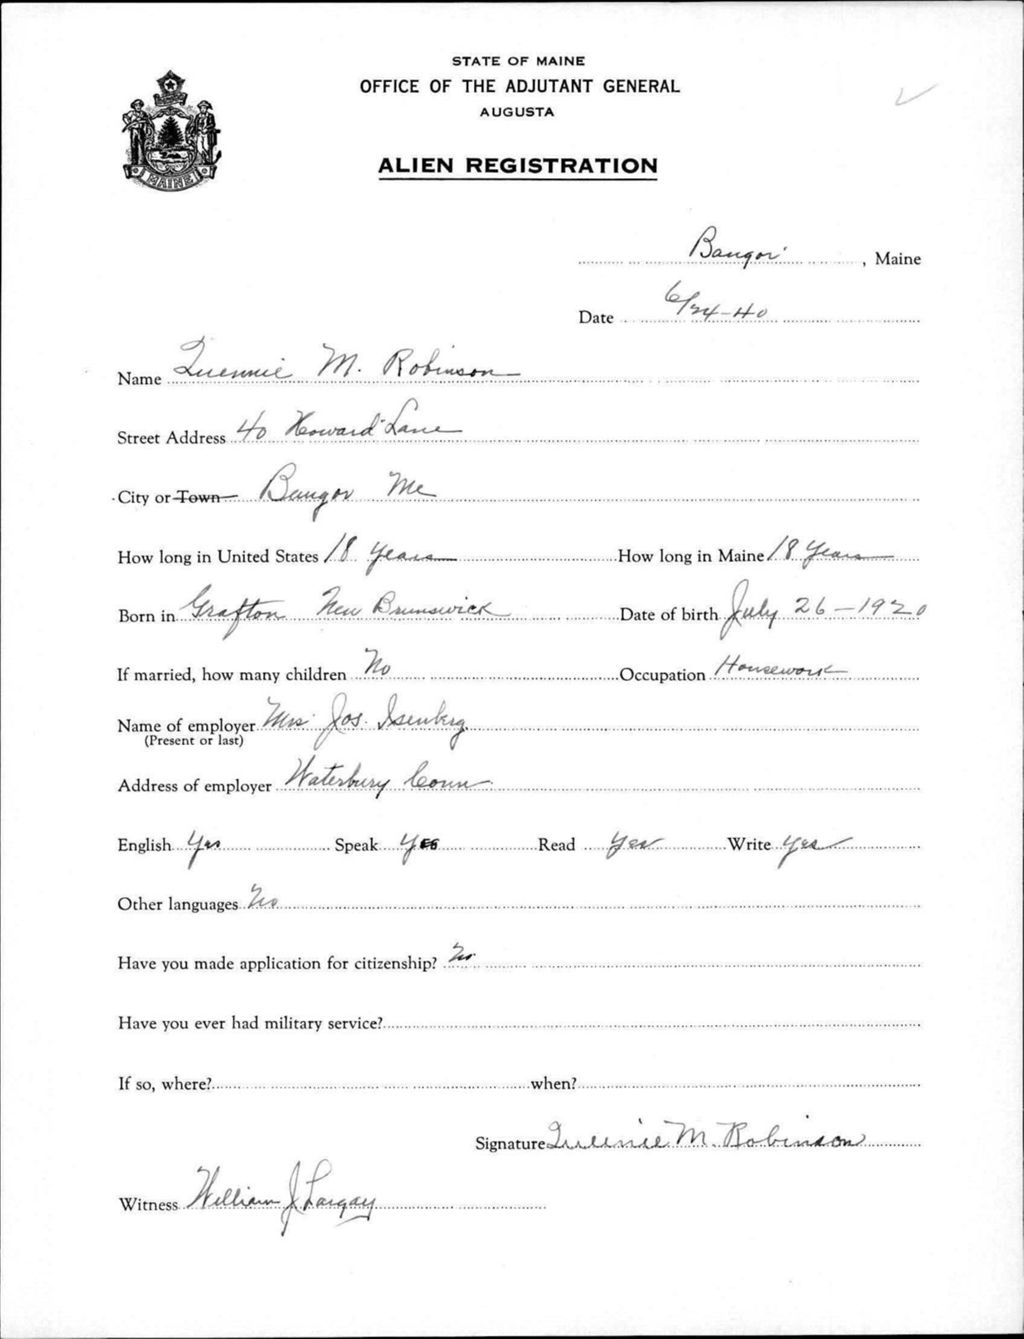 STATE OF MAINE
OFFICE OF THE ADJUTANT GENERAL
AUGUSTA
ALIEN REGISTRATION
MAINE
Bangor, Maine
Date 6/24-40
Name Queennie M. Robinson
Street Address 40 Howard Lane
City or Town Bangor Me
How long in United States 18 years How long in Maine 18 years
Born in Grafton New Brunswick Date of birth July 26-1920
If married, how many children No Occupation Housework
Name of employer Mrs Jos. Isenberg
(Present or last)
Address of employer Waterbury Conn.
English Yes Speak Yes Read Yes Write Yes
Other languages No
Have you made application for citizenship? No
Have you ever had military service?
If so, where? when?
Signature Queenie M. Robinson
Witness William J Largay